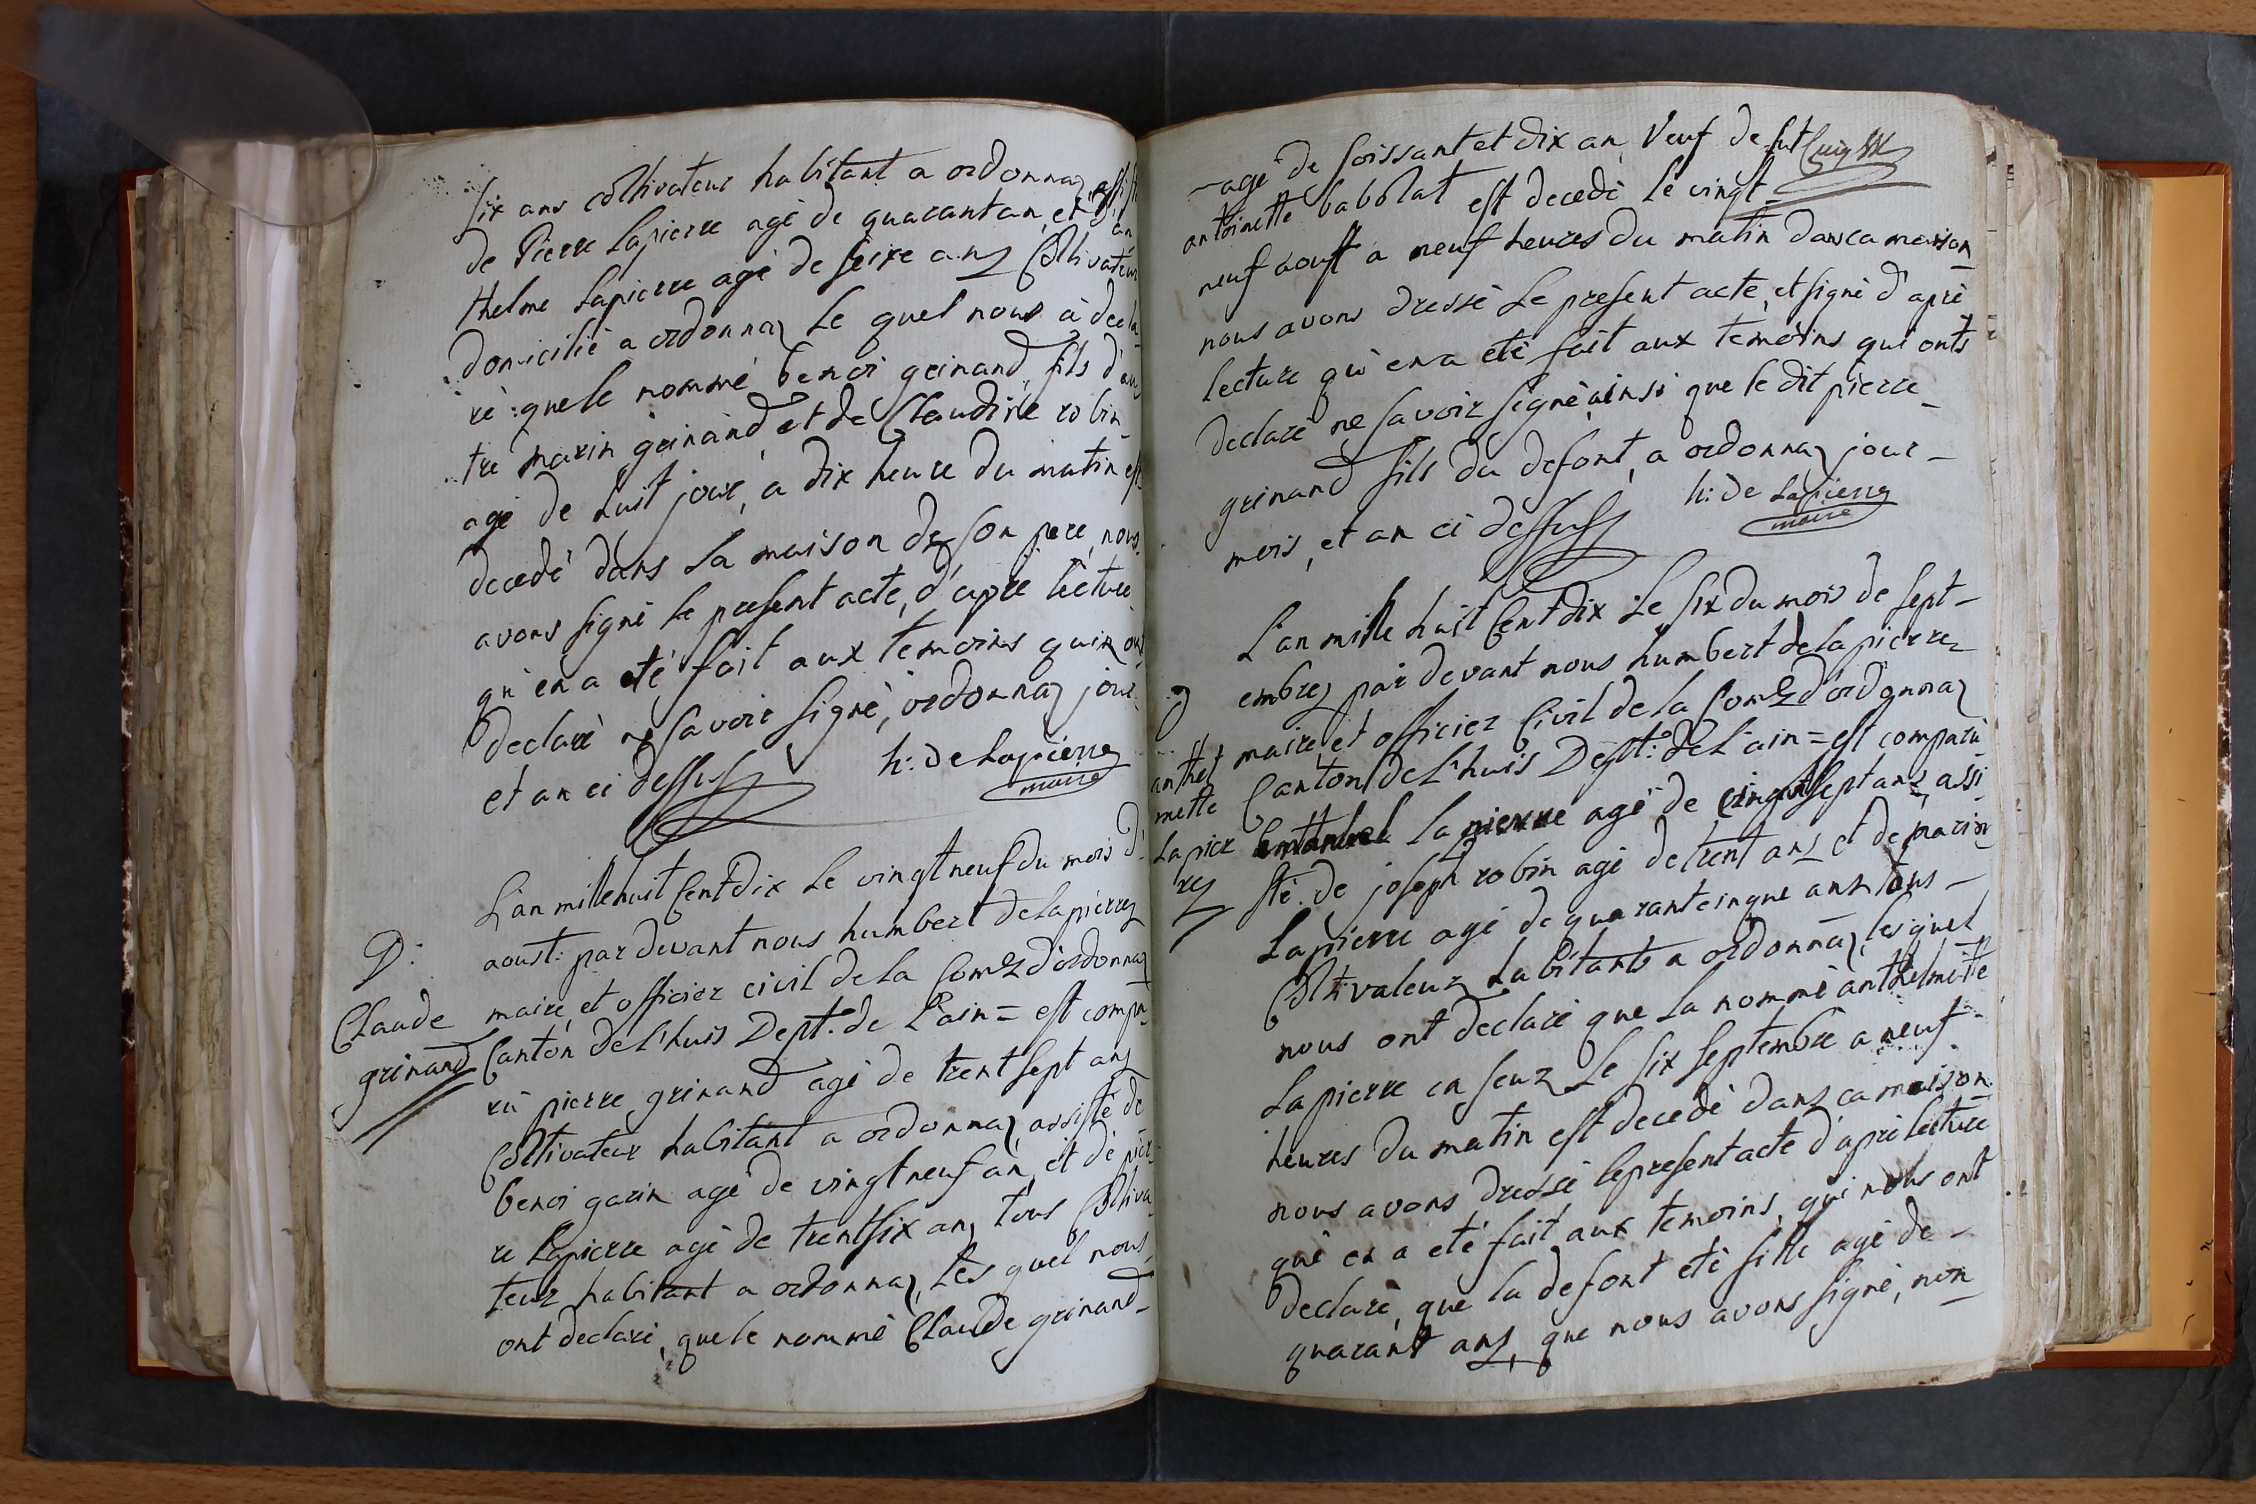 six ans coltivateur habitant a ordonnaz assisté
de Pierre Lapierre agé de quarantan, et d'an
thelme Lapierre agé de seixe ans Coltivateur
domicilié a ordonnaz le quel nous à decla
ré: que le nommé benoi grinand fils d'au
tre marin grinand et de Claudine robin
agé de huit jour, a dix heure du matin est
decedé dans la maison de son pere, nous
avons signé le present acte, d'apre lecture
qu'en a eté fait aux temoins quin ont
declaré ne savoir signé, ordonnaz jour
et an ci dessus
h: de Lapierre
maire
L'an mille huit Cent dix le vingt neuf du mois d'
aoust: par devant nous humbert de Lapierre
D:
Claude
grinand
maire, et officier civil de la Comᵉ d'ordonnaz
Canton de L'huis Dept.º de L'ain = est compa
ru pierre grinand agé de trent sept ans
Coltivateur habitant a ordonnaz, assisté de
benoi garin agé de vingt neuf an, et de pier
re Lapierre agé de trentsix ans tous Coltiva
teur habitant a ordonnaz, Les quel nous
ont declaré, que le nommé Claude grinand
agé de soissant et dix an, Veuf de fut
antoinette babolat est decedé le vingt
neuf aoust a neuf heures du matin dans ca maison
nous avons dressé le present acte, et signé d'aprè
lecture qu'en a eté fait aux temoins qui onts
declaré ne savoir signé, ainsi que le dit pierre
grinand fils du defont, a ordonnaz jour
mois, et an ci dessus
h: de Lapierre
maire
L'an mille huit Cent dix Le six du mois de sept
embre, par devant nous humbert de la pierre
D
anthel
mette
Lapier
re
maire, et officier Civil de la Comᵉ d'ordonnaz
Canton de L'huis Dept.º de L'ain = est comparu
la pierre agé de vingt sept ans, assi
sté de joseph robin agé de trent ans et de marin
Lapierre agé de quarantcinque ans tous
Coltivateur habitants a ordonnaz, les quel
nous ont declaré que la nommé anthelmette
Lapierre en seux Le six septembre a neuf
heures du matin est decedé dans ca maison
nous avons dressé le present acte d'apré lecture
que en a eté fait aux temoins, qui nous ont
declaré, que la defont eté fille agé de
quarant ans, que nous avons signé, non